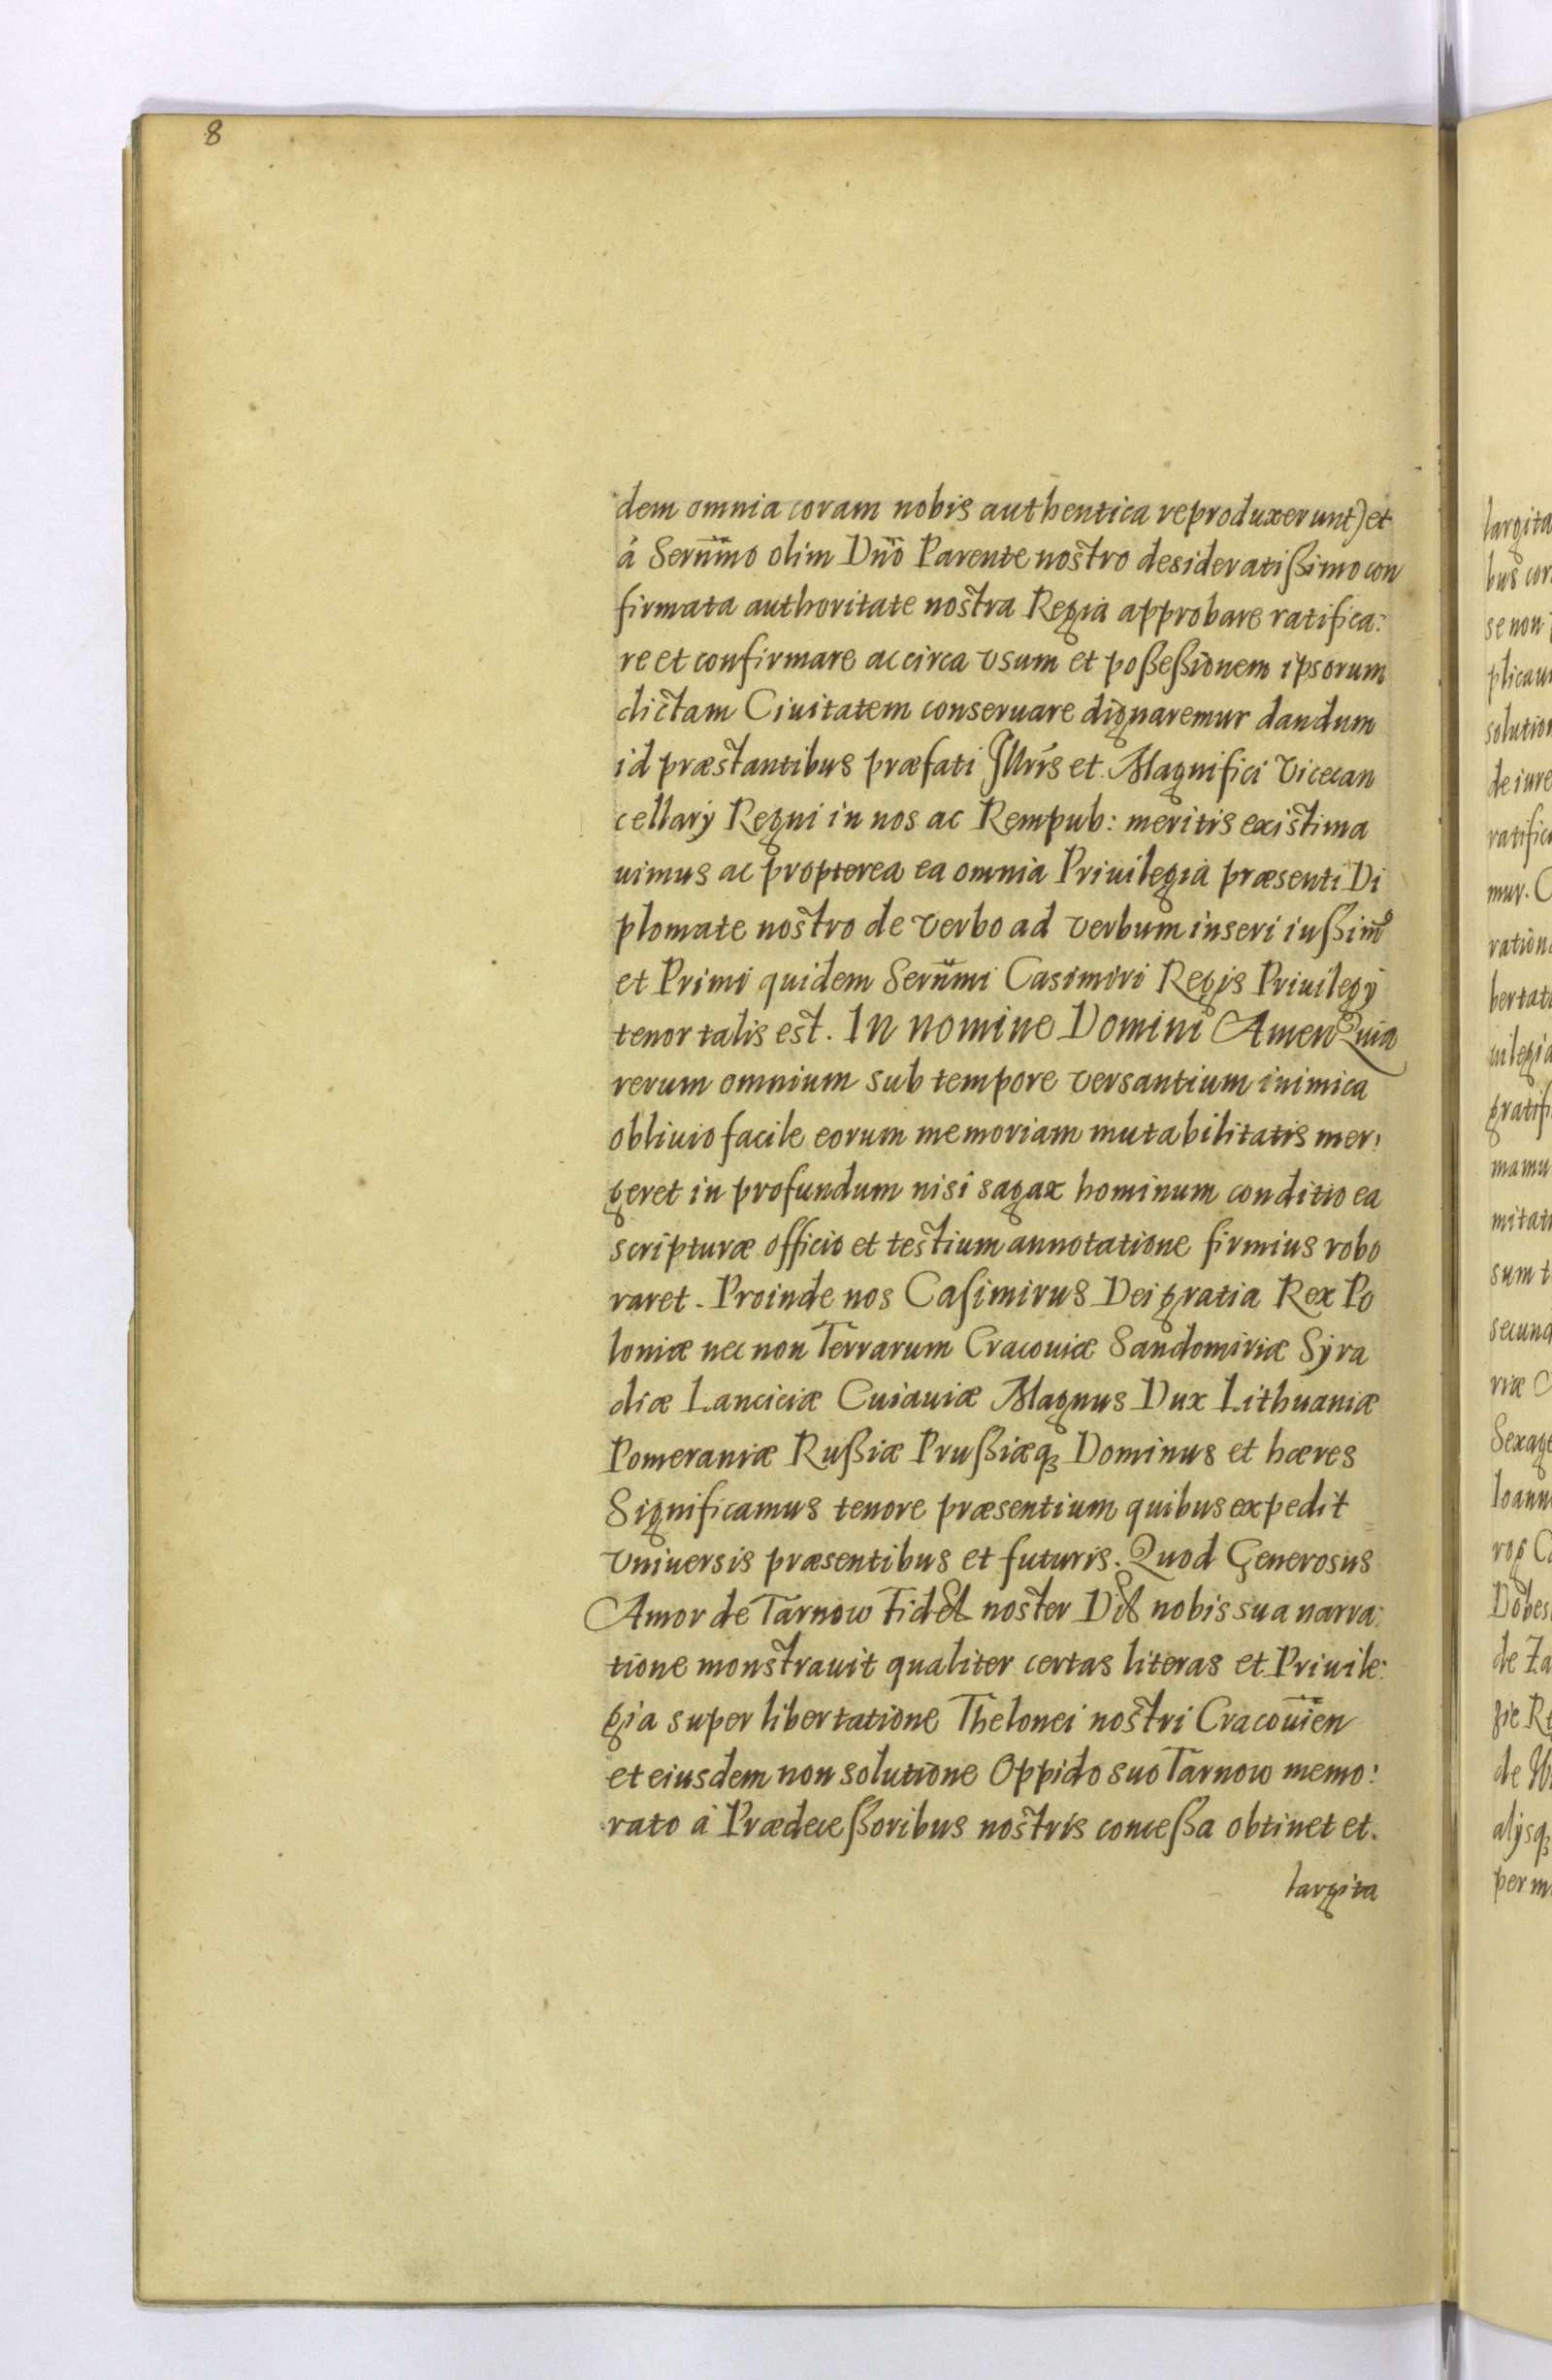 8
dem omnia coram nobis authentica reproduxerunt) et
à Sernm̃o olim Dño Parente nostro desideratißimo con
firmata authoritate nostra Regia approbare ratifica:
re et confirmare ac circa vsum et poßeßionem ipsorum
dictam Ciuitatem conseruare dignaremur dandum
id præstantibus præfati Jllris et Magnifici Vicecan
cellarij Regni in nos ac Rempub: meritis existima
uimus ac propterea ea omnia Priuilegia præsenti Di
plomate nostro de verbo ad verbum inseri iußim9
et Primi quidem Sernm̃i Casimiri Regis Priuilegij
tenor talis est. In nomine Domini Amen Quia
rerum omnium sub tempore versantium inimica
obliuio facile eorum memoriam mutabilitatis mer:
geret in profundum nisi sagax hominum conditio ea
scripturæ officio et testium annotatione firmius robo
raret. Proinde nos Casimirus Dei gratia Rex Po
loniæ nec non Terrarum Cracouiæ Sandomiriæ Syra
diæ Lanciciæ Cuiauiæ Magnus Dux Lithuaniæ
Pomeraniæ Rußiæ Prußiæq3 Dominus et hæres
Significamus tenore præsentium quibus expedit
vniuersis præsentibus et futuris. Quod Generosus
Amor de Tarnow Fidel noster Dil nobis sua narra:
tione monstrauit qualiter certas literas et Priuile:
gia super libertatione Thelonei nostri Cracouien
et eiusdem non solutione Oppido suo Tarnow memo:
rato à Prædeceßoribus nostris conceßa obtinet et.
largita